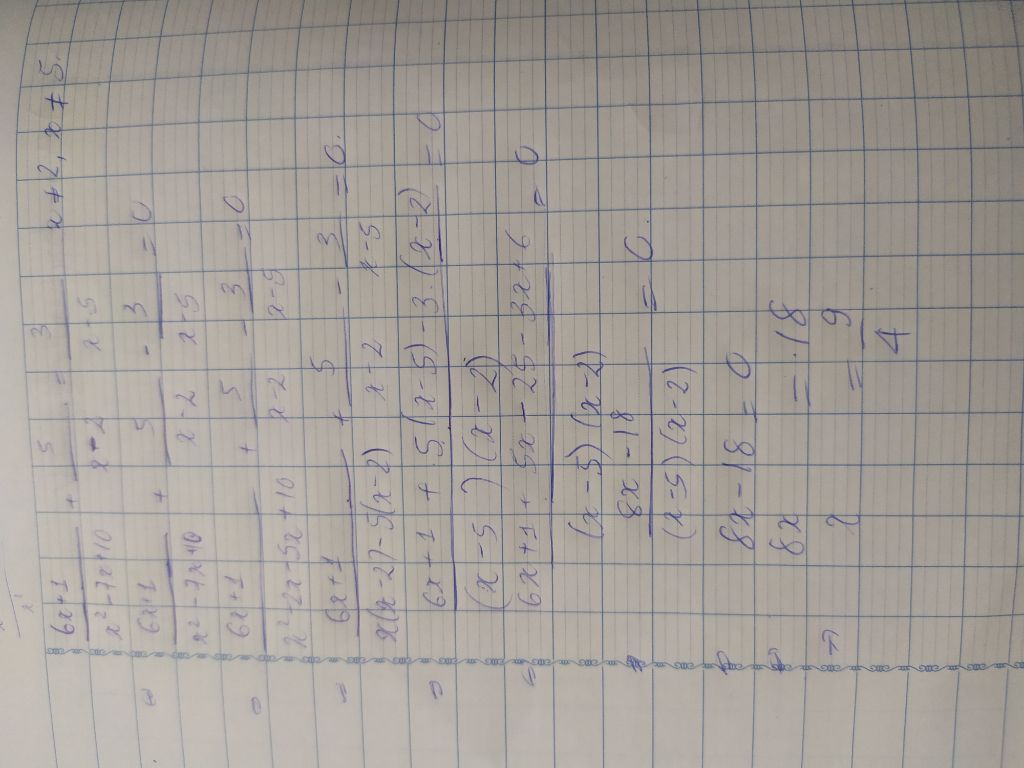 6x+1 / x² - 7x+10 + 5 / x-2 = 3 / x-5 x ≠ 2, x ≠ 5.
⇔ 6x+1 / x² - 7x+10 + 5 / x-2 - 3 / x-5 = 0
⇔ 6x+1 / x² - 2x - 5x + 10 + 5 / x-2 - 3 / x-5 = 0
⇔ 6x+1 / x(x-2) - 5(x-2) + 5 / x-2 - 3 / x-5 = 0.
⇔ 6x+1 + 5.(x-5) - 3.(x-2) / (x-5)(x-2) = 0
⇔ 6x+1 + 5x - 25 - 3x + 6 / (x-5)(x-2) = 0
⇔ 8x - 18 / (x-5)(x-2) = 0.
⇔ 8x - 18 = 0
⇔ 8x = 18
⇒ x = 9 / 4